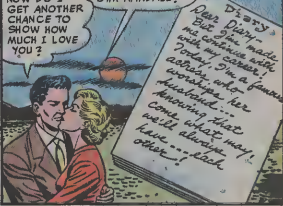 NOW DO I
GET ANOTHER
CHANCE TO
SHOW HOW
MUCH I LOVE
YOU?
Diary
Dear Diary,
Bill I'm made
me continue with
with my career!
Today, I'm a famous
actress who
worships her
husband...
knowing that
come what may,
we'll always
have... each
other...!